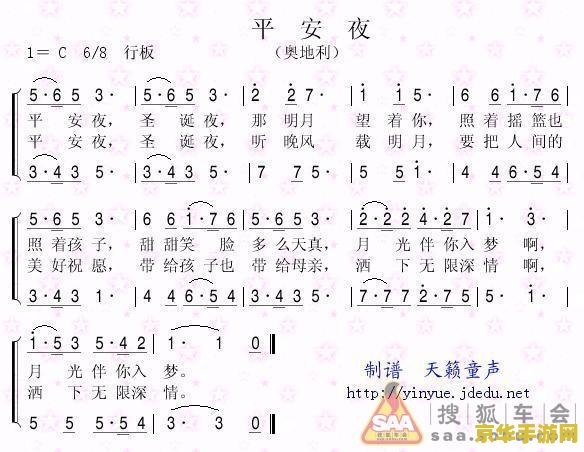 平 安 夜
1= C 6/8 行板 （奥地利）
5·65 3· 5·65 3· 2 2 7 5 i i 5 6 6 i·76
平 安夜， 圣 诞夜， 那明月 望 着你， 照着摇 篮也
平 安夜， 圣 诞夜， 听晚风 载明月， 要把人 间的
3·43 1· 3·43 1· 7 7 5 5 5 5i 4 4 6·54
5·65 3· 6 6 i·76 5·65 3· 2·2 2 4·27 i· 3·
照 着孩子， 甜甜笑 脸 多么天真， 月 光伴你入梦 啊，
美 好祝愿， 带给孩子也 带给母亲， 洒 下无限深情 啊，
3·43 1· 4 4 6·54 3·43 5· 7·77 2·75 5· 1·
i·53 5·42 1·3 1 0
月 光 伴你入 梦。
洒 下 无限深 情。
5 5 5·54 3·1 1 0
制谱 天籁童声
http://yinyue.jdedu.net
SAA
搜狐车会
搜狐车会
京华手游网